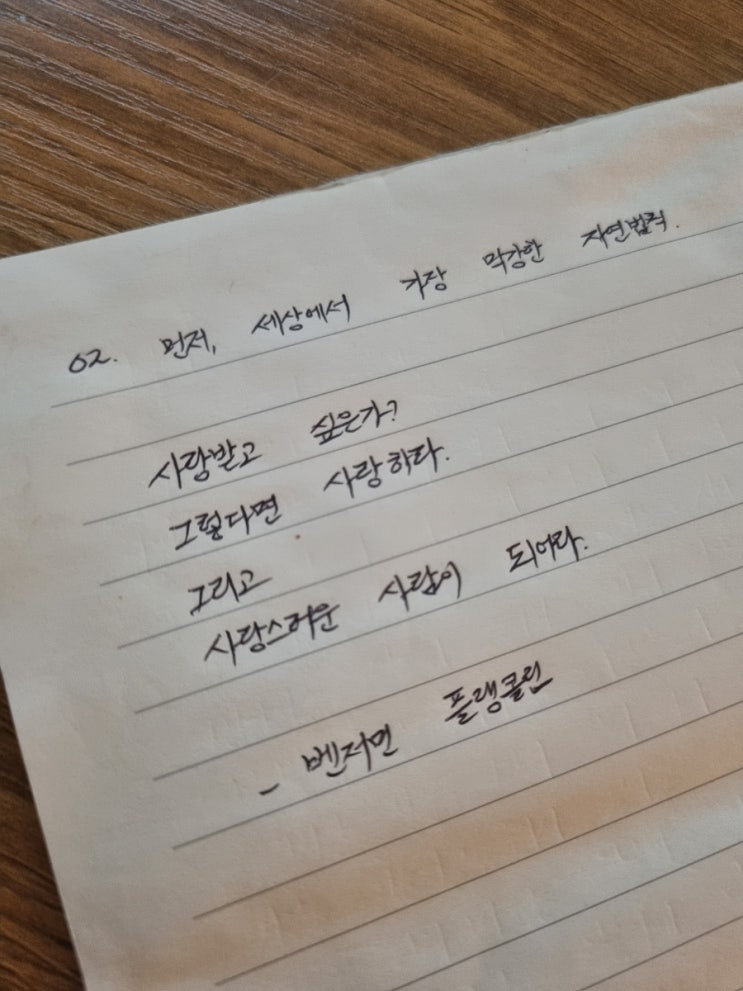 02. 먼저, 세상에서 가장 막강한 자연법칙.
사랑받고 싶은가?
그렇다면 사랑하라.
그리고
사랑스러운 사람이 되어라.
- 벤저민 플랭클린